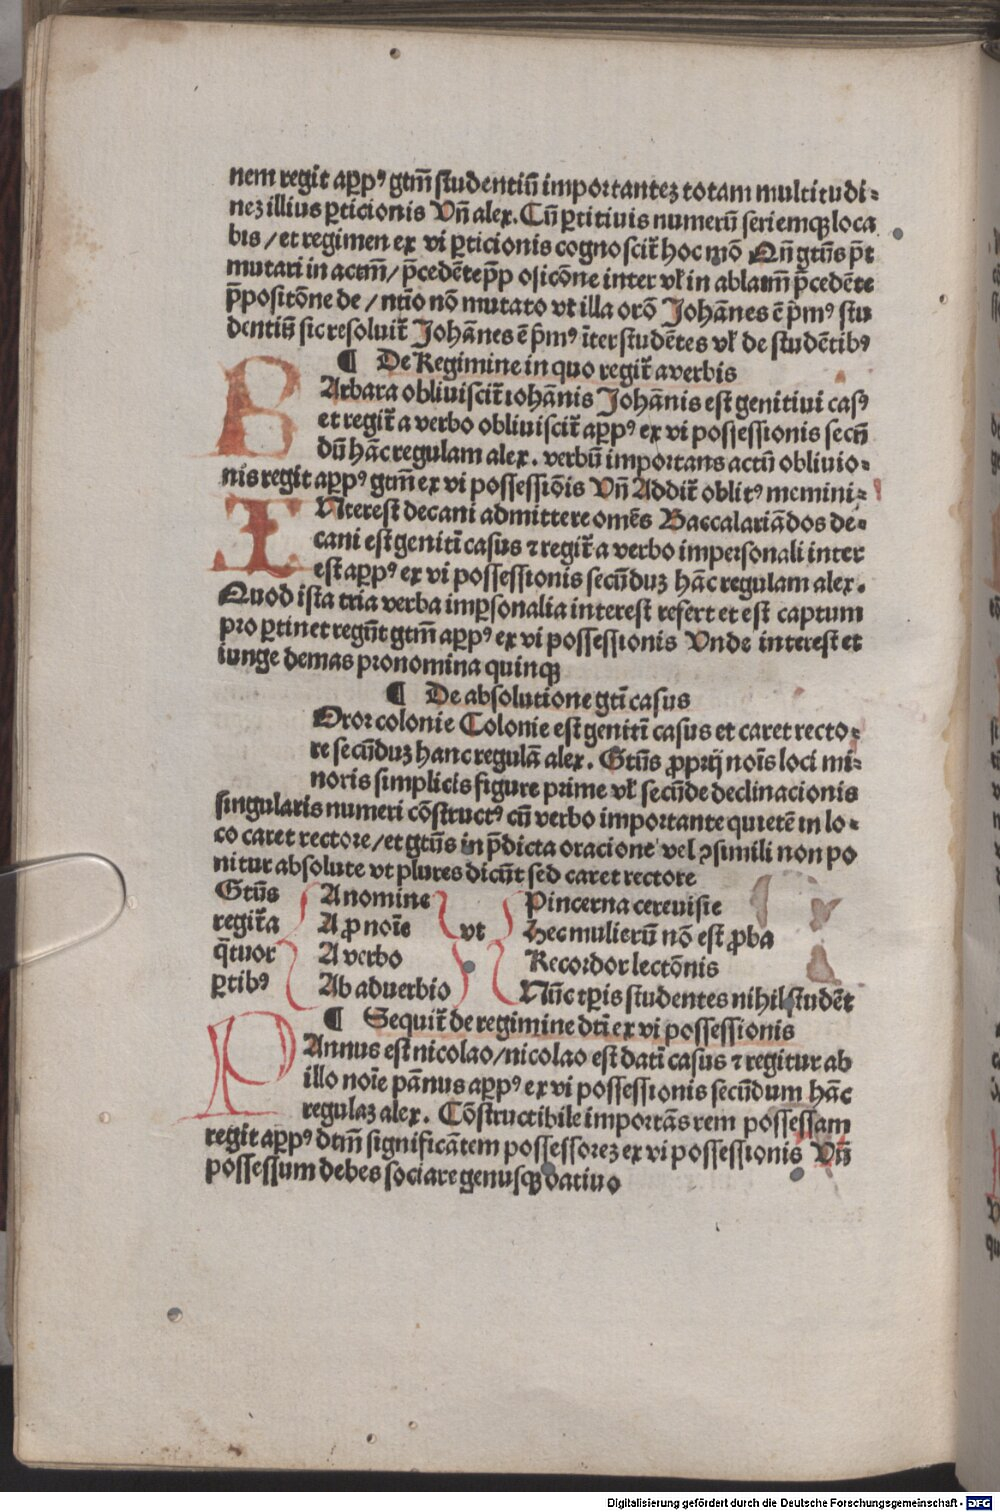 nem regit aꝑpꝰ gtm̄ studentiū importantez totam multitudi⸗
nez illius ꝑticionis Vn̄ alex. Cū ꝑtitiuis numerū seriemqꝫ loca
bis / et regimen ex vi ꝑticionis cognoscit̄ hoc mō Qn̄ gtūs p̄t
mutari in actm̄ / p̄cedēte p̄posicōne inter vl̓ in ablatm̄ p̄cedēte
p̄positōne de / ntīo nō mutato vt illa orō Johānes ē p̄mꝰ stu
dentiū sic resoluit̄ Johānes ē p̄mꝰ īter studētes vl̓ de studētibꝰ
¶ De Regimine in quo regit̄ a verbis
BArbara obliuiscit̄ iohānis Johānis est genitiui casꝰ
et regit̄ a verbo obliuiscit̄ aꝑpꝰ ex vi possessionis secū
dū hāc regulam alex. verbū importans actū obliuio⸗
nis regit aꝑpꝰ gtm̄ ex vi possessiōis Vn̄ Addit̄ oblitꝰ memini⸗
INterest decani admittere omēs Baccalariādos de⸗
cani est genitī casus ⁊ regit̄ a verbo impersonali inter
est aꝑpꝰ ex vi possessionis secūduz hāc regulam alex.
Quod ista tria verba imꝑsonalia interest refert et est captum
pro ꝑtinet regūt gtm̄ aꝑpꝰ ex vi possessionis Vnde interest et
iunge demas pronomina quinqꝫ
¶ De absolutione gtī casus
Oror colonie Colonie est genitī casus et caret recto⸗
re secūduz hanc regulā alex. Gtūs ꝓprij noīs loci mi⸗
noris simplicis figure prime vl̓ secūde declinacionis
singularis numeri cōstructꝰ cū verbo importante quietē in lo⸗
co caret rectore / et gtūs in p̄dicta oracione vel ꝯsimili non po
nitur absolute vt plures dicūt sed caret rectore
Gtūs A nomine Pincerna cereuisie
regit̄ a A ꝓnoīe vt Hec mulierū nō est ꝓba
q̄tuor A verbo Recordor lectōnis
ꝑtibꝰ Ab aduerbio Nūc tꝑis studentes nihil studēt
¶ Sequit̄ de regimine dtī ex vi possessionis
PAnnus est nicolao / nicolao est datī casus ⁊ regitur ab
illo noīe pānus aꝑpꝰ ex vi possessionis secūdum hāc
regulaz alex. Cōstructibile importās rem possessam
regit aꝑpꝰ dtm̄ significātem possessorez ex vi possessionis Vn̄
possessum debes sociare genusqꝫ datiuo
Digitalisierung gefördert durch die Deutsche Forschungsgemeinschaft - DFG